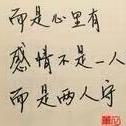 而是心里有
感情不是一人
而是两人守